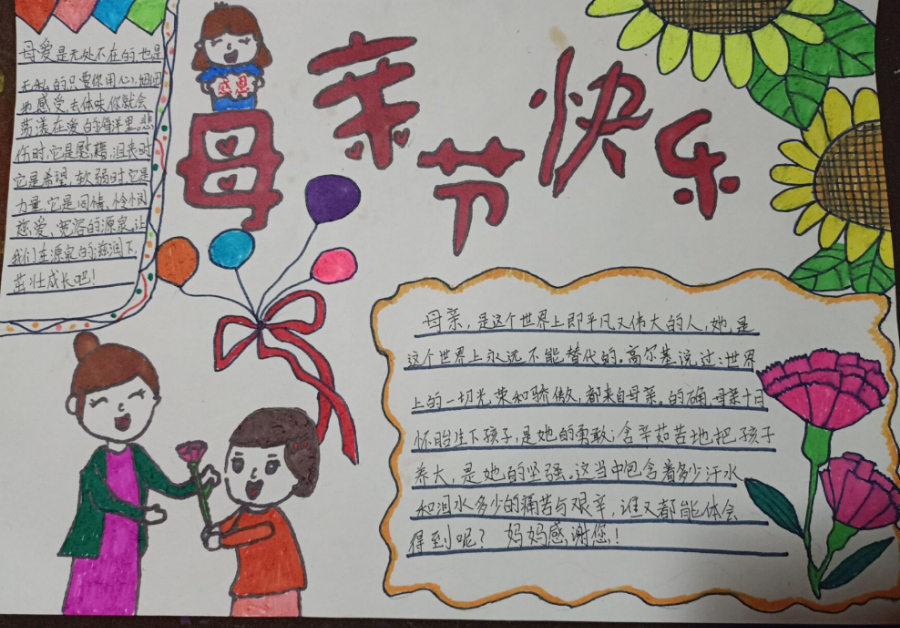 感恩
母亲节快乐
母爱是无处不在的也是
无私的只要你用心
地感受去体味你就会
荡漾在爱的海洋里,悲
伤时,它是慰藉,沮丧时
它是希望,软弱时它是
力量,它是同情、怜悯
慈爱、宽容的源泉,让
我们在源泉的滋润下,
茁壮成长吧!
母亲,是这个世界上即平凡又伟大的人,她,是
这个世界上永远不能替代的。高尔基说过:世界
上的一切光荣和骄傲,都来自母亲。的确,母亲十月
怀胎生下孩子,是她的勇敢;含辛茹苦地把孩子
养大,是她的坚强。这当中包含着多少汗水
和泪水多少的痛苦与艰辛,谁又都能体会
得到呢? 妈妈感谢您!